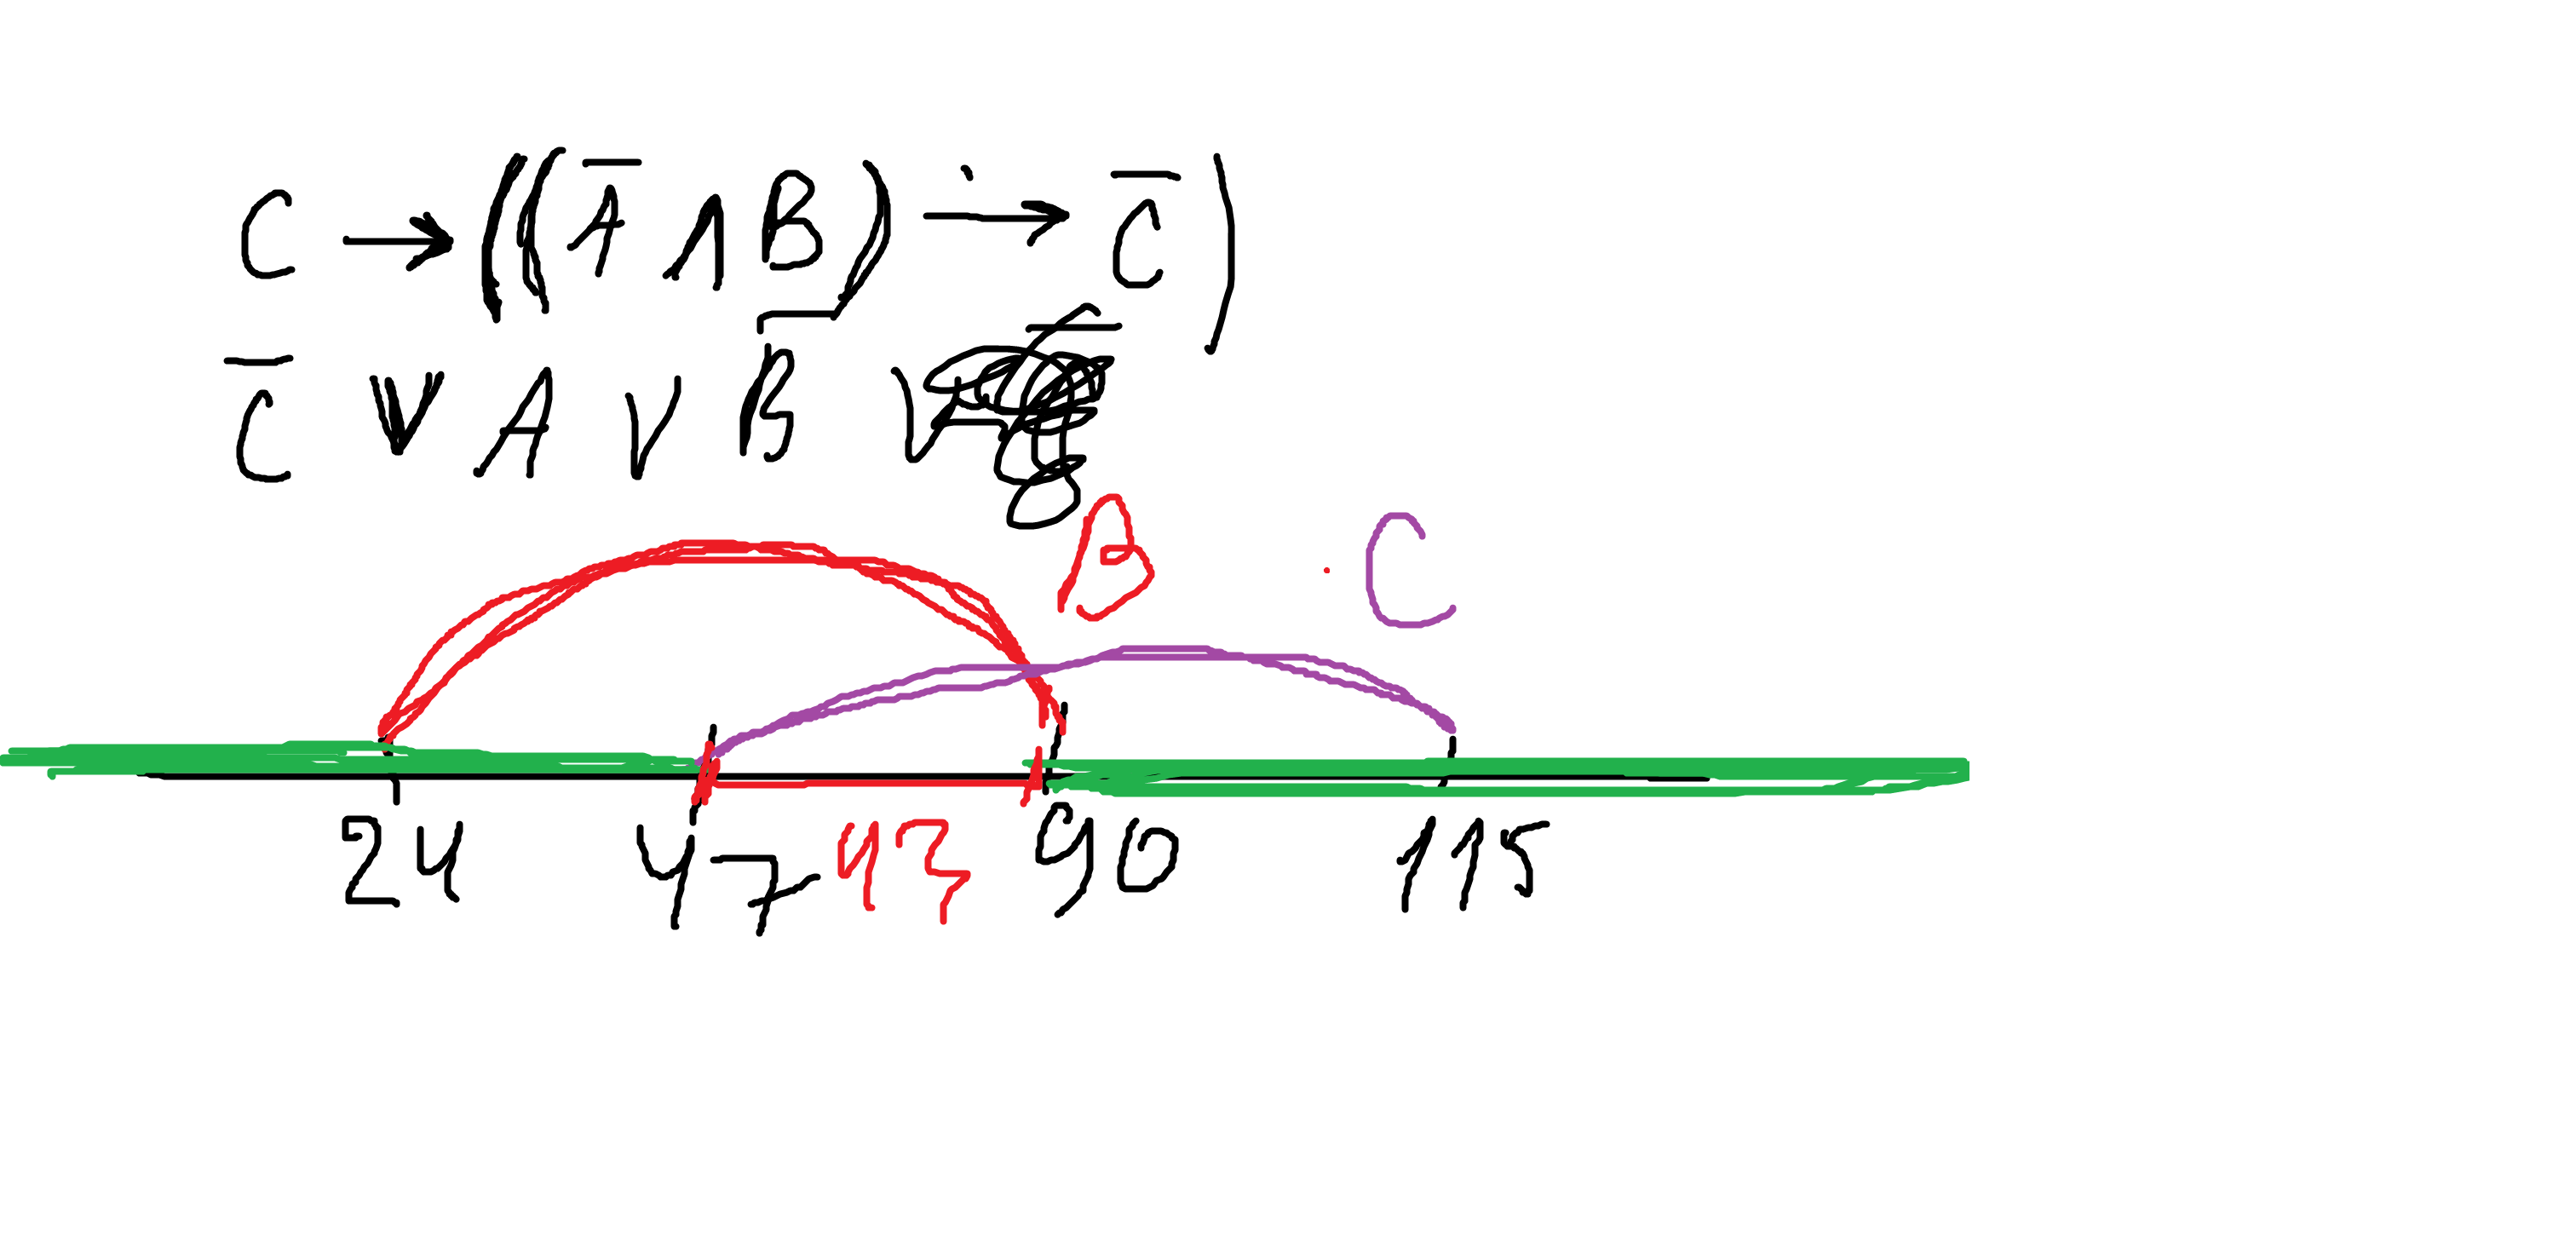 C → ((A̅ ∧ B) → C̅)
C̅ ∨ A ∨ B̅ ∨
B C
24 47 43 90 115